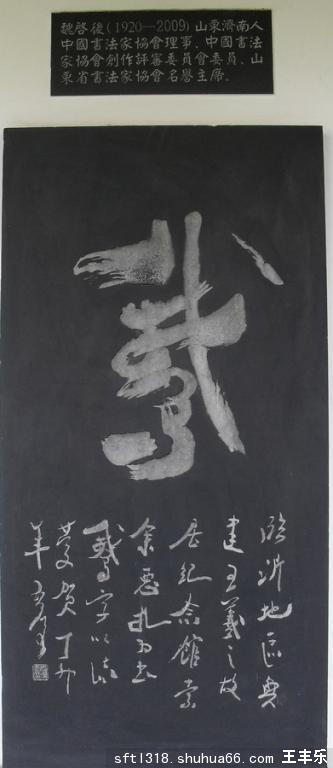 魏啓後(1920—2009)山東濟南人
中國書法家協會理事、中國書法
家協會創作評審委員會委員、山
東省書法家協會名譽主席。
鵞
临沂地區興
建王羲之故
居紀念館索
余惡札为书
鵞字以誌
慶賀丁卯
年啓後
sftl318.shuhua66.com 王丰乐